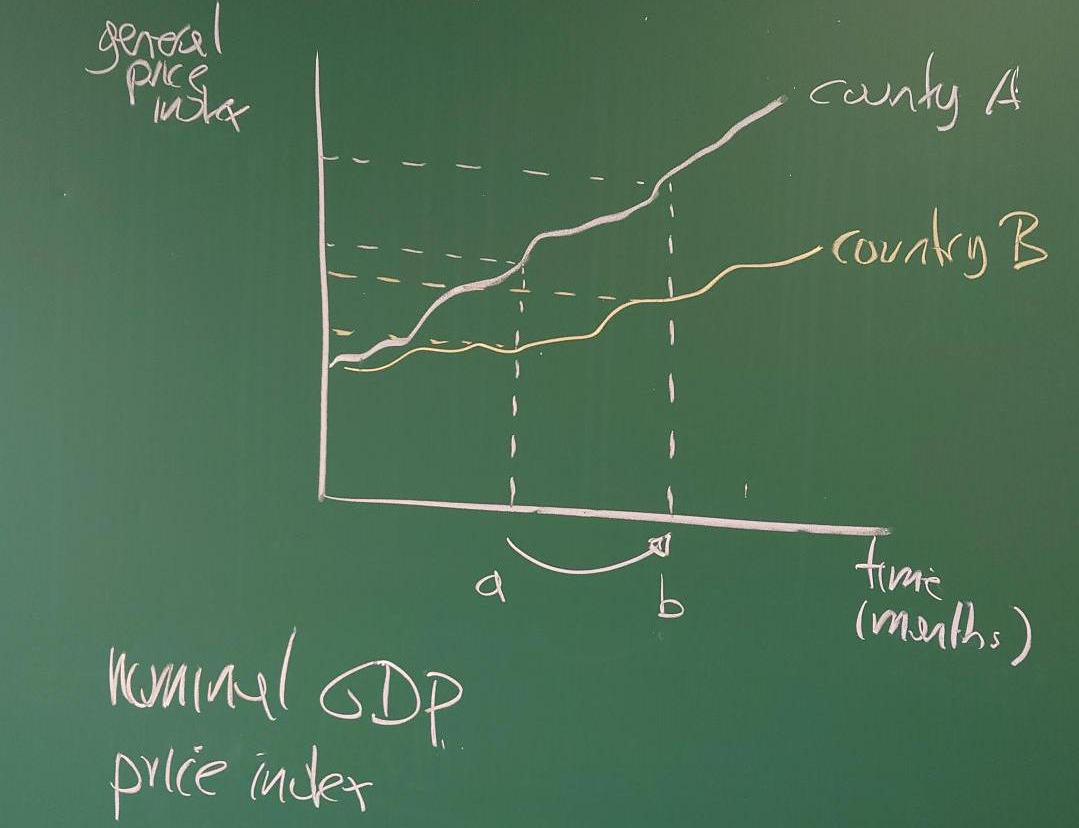 general
price
index
county A
country B
a
b
time
(months)
nominal GDP
price index